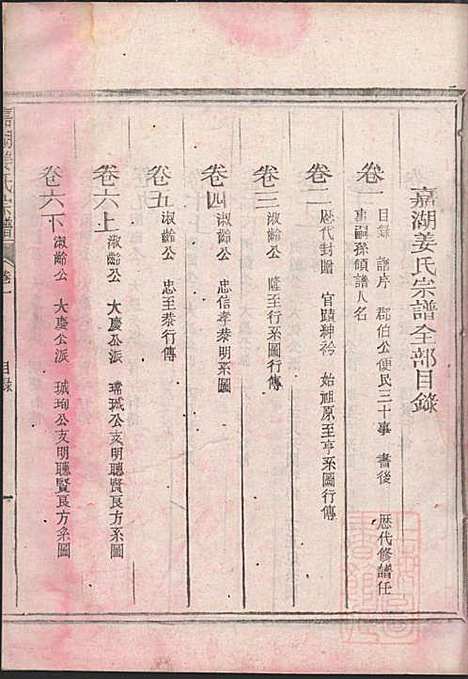 嘉湖姜氏宗譜全部目錄
卷一
目錄 譜序 郡伯公便民三十事 書後 歷代修譜任
事嗣孫領譜人名
卷二
歷代封贈 官蹟紳衿 始祖原至亨系圖行傳
卷三
淑齡公 隆至行系圖行傳
卷四
淑齡公 忠信孝恭明系圖
卷五
淑齡公 忠至恭行傳
卷六上
淑齡公 大慶公派 瑺珹公支明聽賢良方系圖
卷六下
淑齡公 大慶公派 珹珣公支明聽賢良方系圖
嘉湖姜氏宗譜 卷一 目錄 一